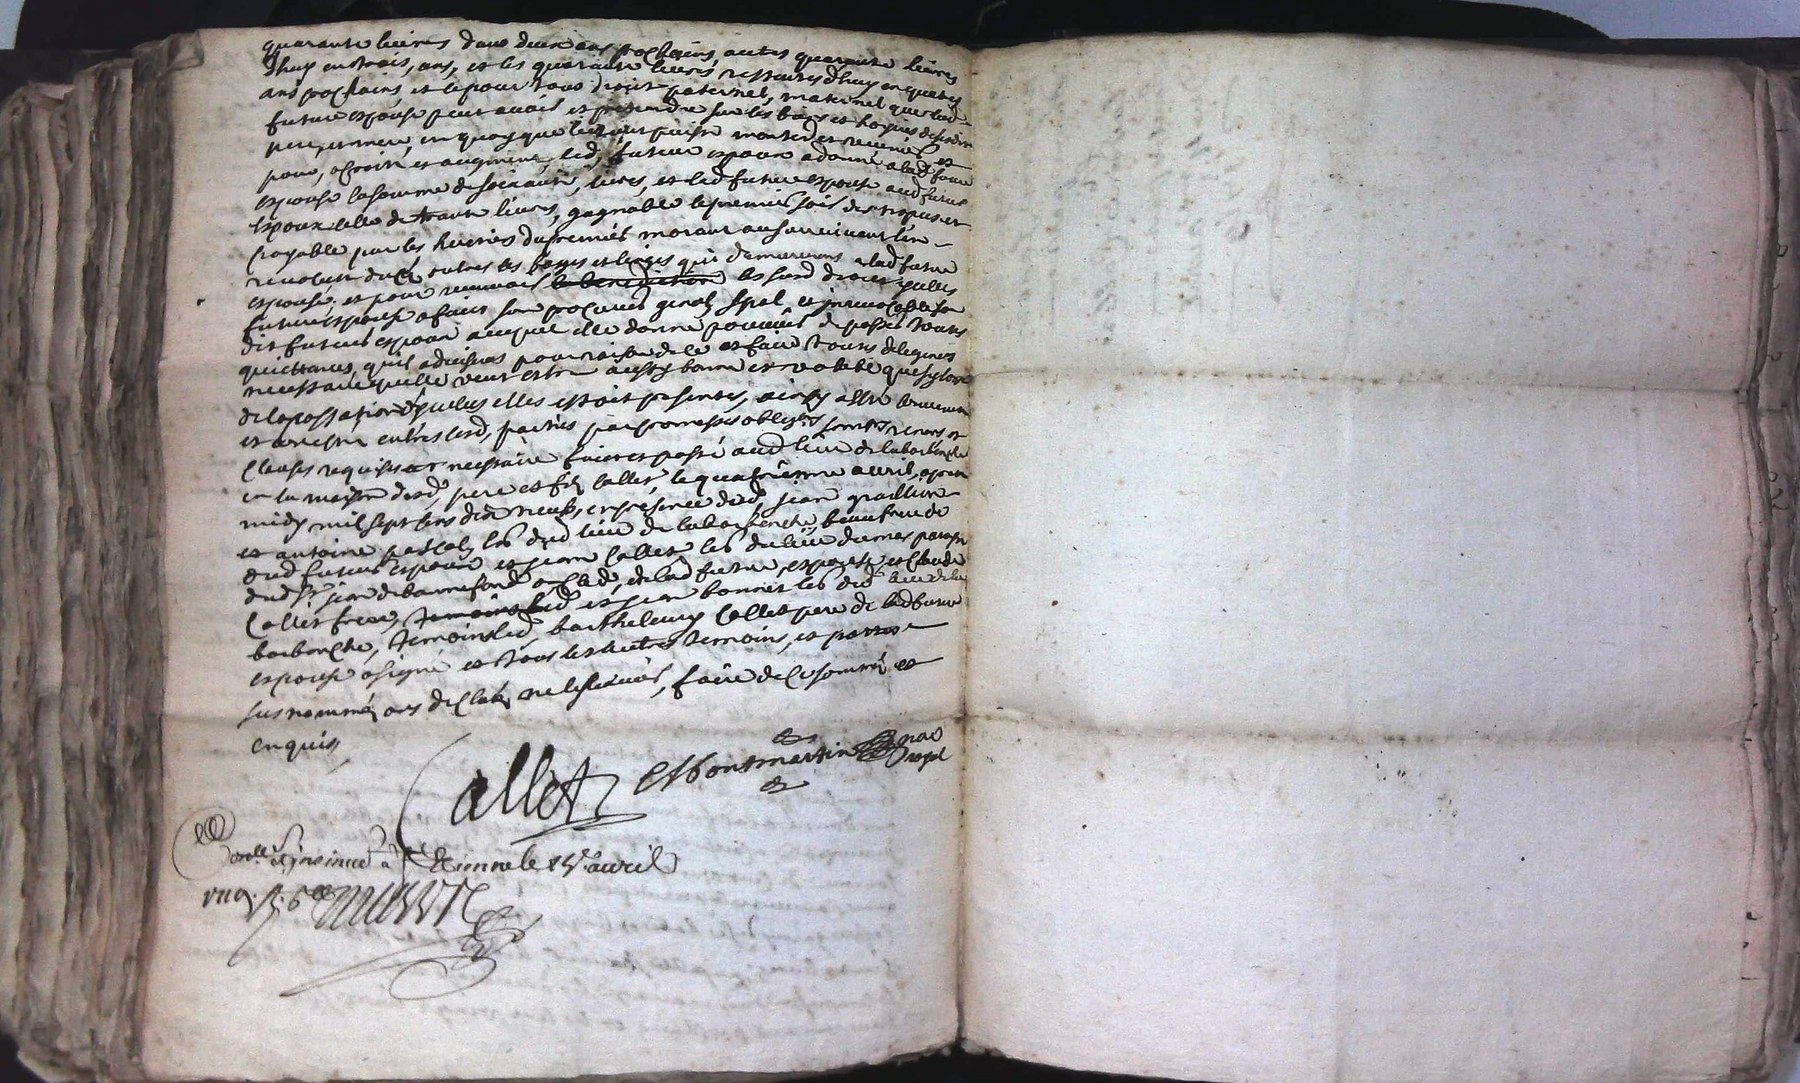 quarante livres dans deux ans prochains, autres quarante livres
d'huy en trois, ans, et les quarante livres restantes d'huy en quatre
ans prochains et ce pour tous droit paternel, maternel que lad
future espouse peut avoir et pretendre sur les biens et hoiries de sesd
pere, et mere, en quoy que le tout puisse monter et revenir et
pour, acroist et augment, led, futeur espoux a donné a lad future
espouse la somme de soixante, livres, et lad future espouse aud futeur
espoux celle de trante livres, gagnable le premier soir des nopces et
payable par les heritiers du premier morant au survivant l'an
revolu du outres les bagues et linges qui demeureront a lad future
espouse, et pour recevoir la benediction les susd droits icelle
future espouse a faict son procureur genal spal et inrevocable son
dit futeur espoux auquel elle donne pouvoir de passer toutes
quictances, qu'il advisera pour raison de ce et faire toutes deligences
necessaire quelle veut estre aussy bonne et valable que sy lors
de la passation d'icelles elle estoit presente, ainsy a esté convenu
et entre lesd, parties par promesses obligons renons et
clauses requises et necessaire faict et passé aud lieu de labarbenche
en la maison desd, pere et fils callet, le quatrieme avril, apres
midy mil sept cens dix neuf, en presence de sr jean
et antoine pascal les dud lieu de labarbenche, beaufrere
dud futeur espoux et jean callet les du lieu parroisse
dud St jean de bonnefond de lad future, espouse et claude
callet frere, temoins led et jean bonnet les dud lieu de la
barbenche, temoins led, barthelemy callet pere de lad future
espouse a signé et tous les autres temoins, et parties
sus nommés ont declaré ne le scavoir, faire de ce sommés et
enquis,
Callet
nore
royal
Conllé et insinué à le 15e avril
1719. R. 6